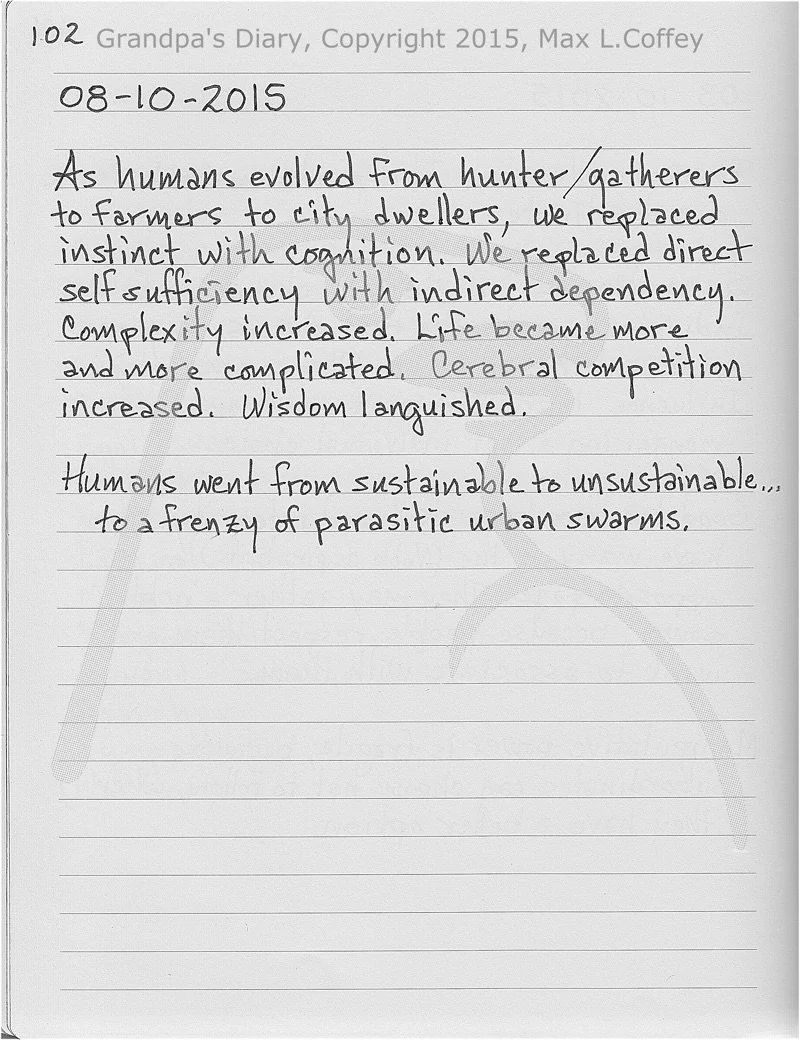 102 Grandpa's Diary, Copyright 2015, Max L.Coffey
08-10-2015
As humans evolved from hunter/gatherers
to farmers to city dwellers, we replaced
instinct with cognition. We replaced direct
self sufficiency with indirect dependency.
Complexity increased. Life became more
and more complicated. Cerebral competition
increased. Wisdom languished.
Humans went from sustainable to unsustainable...
to a frenzy of parasitic urban swarms.